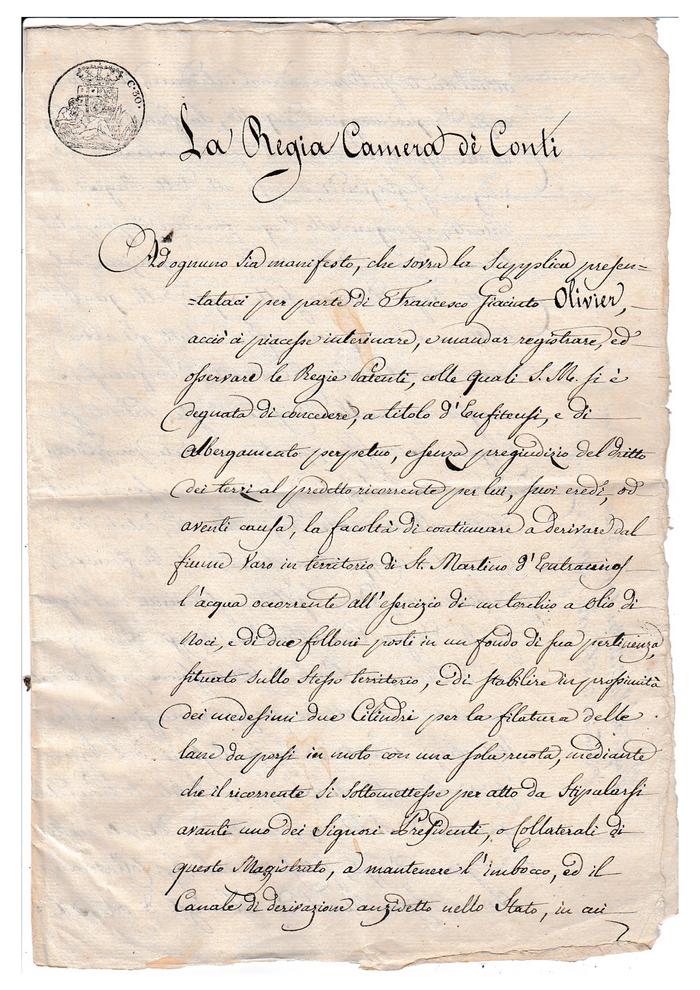 C. 30.
La Regia Camera de' Conti
Ad ognuno sia manifesto, che sovra la Supplica presen=
=tataci per parte di Francesco Giacinto Olivier,
acciò ci piacesse interinare, e mandar registrare, ed
osservare le Regie Patenti, colle quali S. M. si è
degnata di concedere, a titolo d'Enfiteusi, e di
albergamento perpetuo, e senza pregiudizio del dritto
dei terzi al predetto ricorrente per lui, suoi eredi, od
aventi causa, la facoltà di continuare a derivare dal
fiume Varo in territorio di St. Martino d'Entraunes
l'acqua occorrente all'esercizio di un torchio a olio di
noci, e di due folloni posti in un fondo di sua pertinenza,
situato sullo stesso territorio, e di stabilire in prossimità
dei medesimi due Cilindri per la filatura delle
lane da porsi in moto con una sola ruota, mediante
che il ricorrente si sottomettesse per atto da stipularsi
avanti uno dei Signori Presidenti, o Collaterali di
questo Magistrato, a mantenere l'imbocco, ed il
Canale di derivazione anzidetto nello Stato, in cui